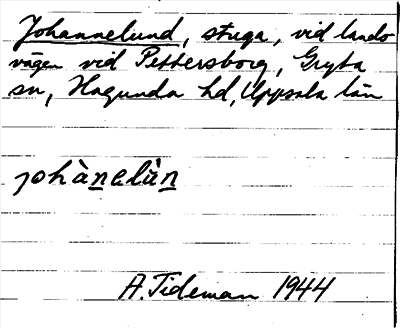 Johannelund, stuga, vid lands
vägen vid Pettersborg, Gryta
sn, Hagunda hd, Uppsala län
johànelùn
A. Tideman 1944